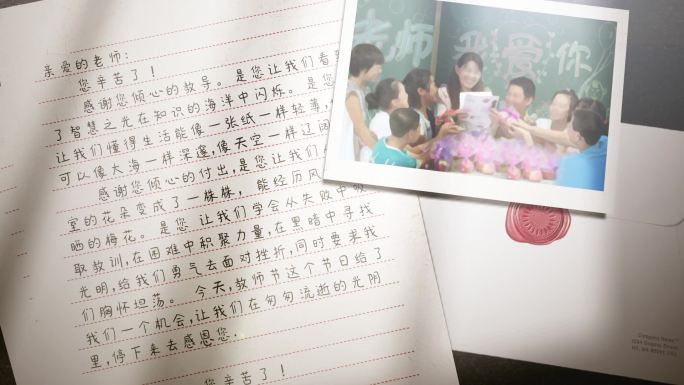 亲爱的老师:
您辛苦了!
感谢您倾心的教导。是您让我们看
了智慧之光在知识的海洋中闪烁。是您
让我们懂得生活能像一张纸一样轻薄,
可以像大海一样深邃,像天空一样辽阔
感谢您倾心的付出,是您让我们
室的花朵变成了一株株,能经历风
晒的梅花。是您 让我们学会从失败中吸
取教训,在困难中积聚力量,在黑暗中寻找
光明,给我们勇气去面对挫折,同时要求我
们胸怀坦荡。 今天,教师节这个节日给了
我们一个机会,让我们在匆匆流逝的光阴
里,停下来去感恩您.
您辛苦了!
老师 我爱你